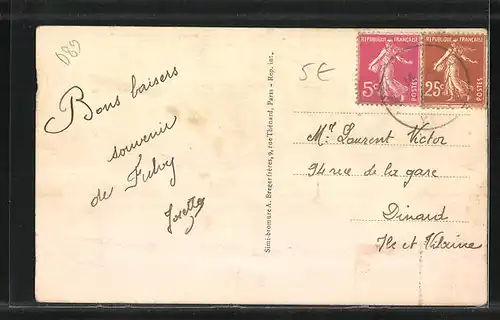 D89
5€
Bons baisers
souvenir
de Fulvy
Josette
Simi-bromure A. Breger frères, 9, rue Thénard, Paris - Rep. int.
REPUBLIQUE FRANÇAISE
5c
POSTES
REPUBLIQUE FRANÇAISE
25c
POSTES
Mr Laurent Victor
94 rue de la gare
Dinard
Ile et Vilaine